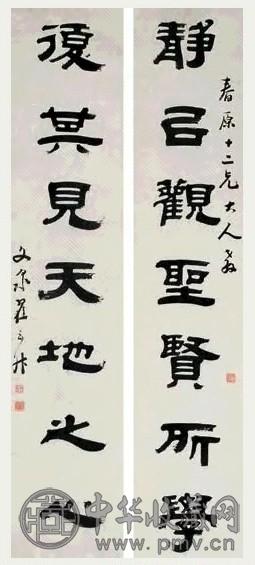 春原十二兄大人教
靜㠯觀聖賢所學
復其見天地之心
文泉翟云升
中华收藏网
www.pmv.cn